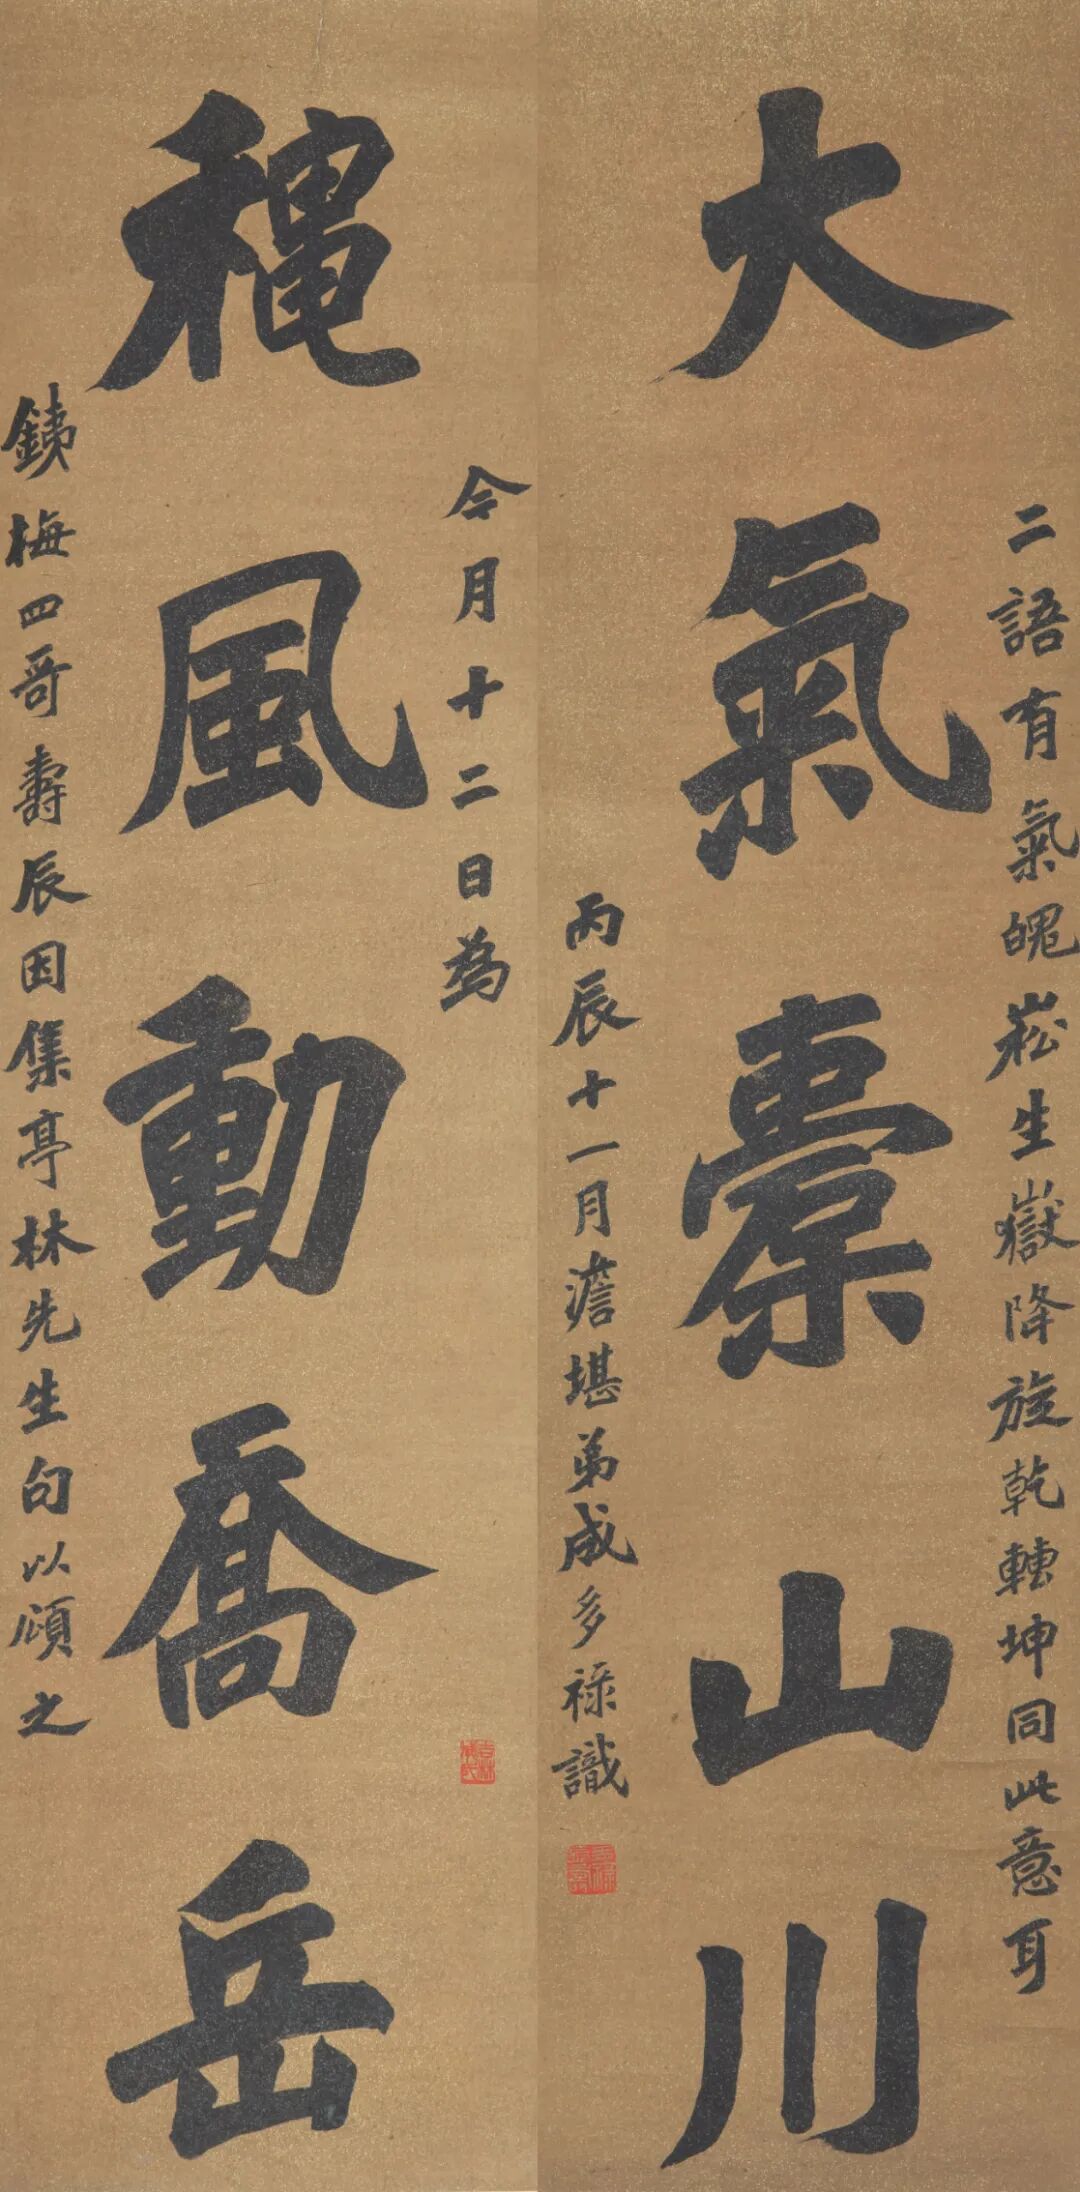 二語有氣魄崧生嶽降旋乾轉坤同此意耳
大氣橐山川
丙辰十一月澹堪弟成多祿識
今月十二日為
穐風動喬岳
銕梅四哥壽辰因集亭林先生句以頌之